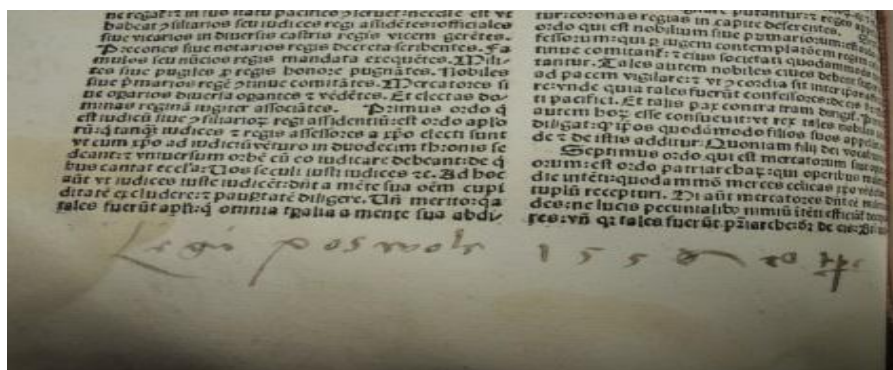 ne regat: ⁊ in suo statu pacifice ꝯseruet: necesse est vt
habeat ꝯsiliarios seu iudices regi assidētes: officiales
siue vicarios in diuersis castris regis vicem gerētes.
Precones siue notarios regis decreta scribentes. Fa
mulos seu nūcios regis mandata exequētes. Mili-
tes siue pugiles ꝓ regis honore pugnātes. Nobiles
siue p̄marios regē ꝯtinue comitātes. Mercatores si
ue oꝑarios diuersa oꝑantes ⁊ vēdētes. Et electas do-
minas reginā iugiter associātes. Primus ordo q̄
est iudicū siue ꝯsiliarioꝝ regi assidentiū: est ordo aplo
rū: q̄ tanq̄ꝫ iudices ⁊ regis assessores a xp̄o electi sunt
vt cum xp̄o ad iudiciū vēturo in duodecim thronis se
deant: ⁊ vniuersum orbē cū eo iudicare debeant: de q̄
bus cantat eccl'ia: Uos seculi iusti iudices ⁊c. Ad hoc
aūt vt iudices iuste iudicēt: dn̄t a mēte sua oēm cupi
ditatē excludere: ⁊ pauꝑtatē diligere. Un̄ merito: qa
tales fuerūt apl'i: q̄ omnia tꝑalia a mente sua abdi
tur: coronas regias in capite deserentes.
ordo qui est nobilium siue primariorum: est
fessorum: qui ꝑ iugem contemplatōem regem
tinue comitant᷑: ⁊ eius societati quodammodo
tantur. Tales autem nobiles ciues debent
ad pacem vigilare: ⁊ vt ꝯcordia sit inter ip̄os
re: vnde quia tales fuerūt confessores: de eis
ti pacifici. Et talis pax contra iram
autem hoc esse consueuit: vt rex tales nobiles
diligat: q̄ ip̄os quodāmodo filios suos
de ⁊ de istis additur: Quoniam filij dei
Septimus ordo qui est mercatorum siue
orum: est ordo patriarchaꝝ: qui operibus
die intēti: quodammō merces celicas
tuplū recepturi. Hi aūt mercatores
des: ne lucis pecunialibꝰ nimiū itēti efficiāt
res: vn̄ qꝛ tales fuerūt p̄riarche: dꝛ de eis:
Legi 155